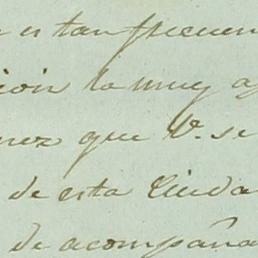 es tan frecuen
cion la muy a
nez que V. se
de esta Ciuda
de acompaña